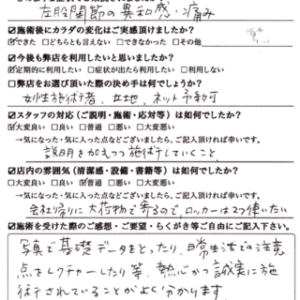 左股関節の異和感・痛み
☑施術後にカラダの変化はご実感頂けましたか?
☑できた □どちらとも言えない □できなかった □その他
☑今後も弊店を利用したいと思いましたか?
☑定期的に利用したい □症状が出たら利用したい □利用しない
□弊店をお選び頂いた際の決め手は何でしょうか?
女性施術者、立地、ネット予約可
☑スタッフの対応(ご説明・施術・応対等)は如何でしたか?
☑大変良い □良い □普通 □悪い □大変悪い
→気になった・気に入った点などございましたら、ご記入頂ければ幸いです。
説明をかねつつ施術していくこと
☑店内の雰囲気(清潔感・設備・書籍等)は如何でしたか?
□大変良い ☑良い □普通 □悪い □大変悪い
→気になった・気に入った点などございましたら、ご記入頂ければ幸いです。
会社帰りに大荷物で寄るので、ロッカーは2つ使いたい
☑施術を受けた際のご感想・ご要望・らくがき等ご自由にご記入下さい。
写真で基礎データをとったり、日常生活での注意
点をレクチャーしたり等、熱心かつ誠実に施
術されていることがよく分かります。